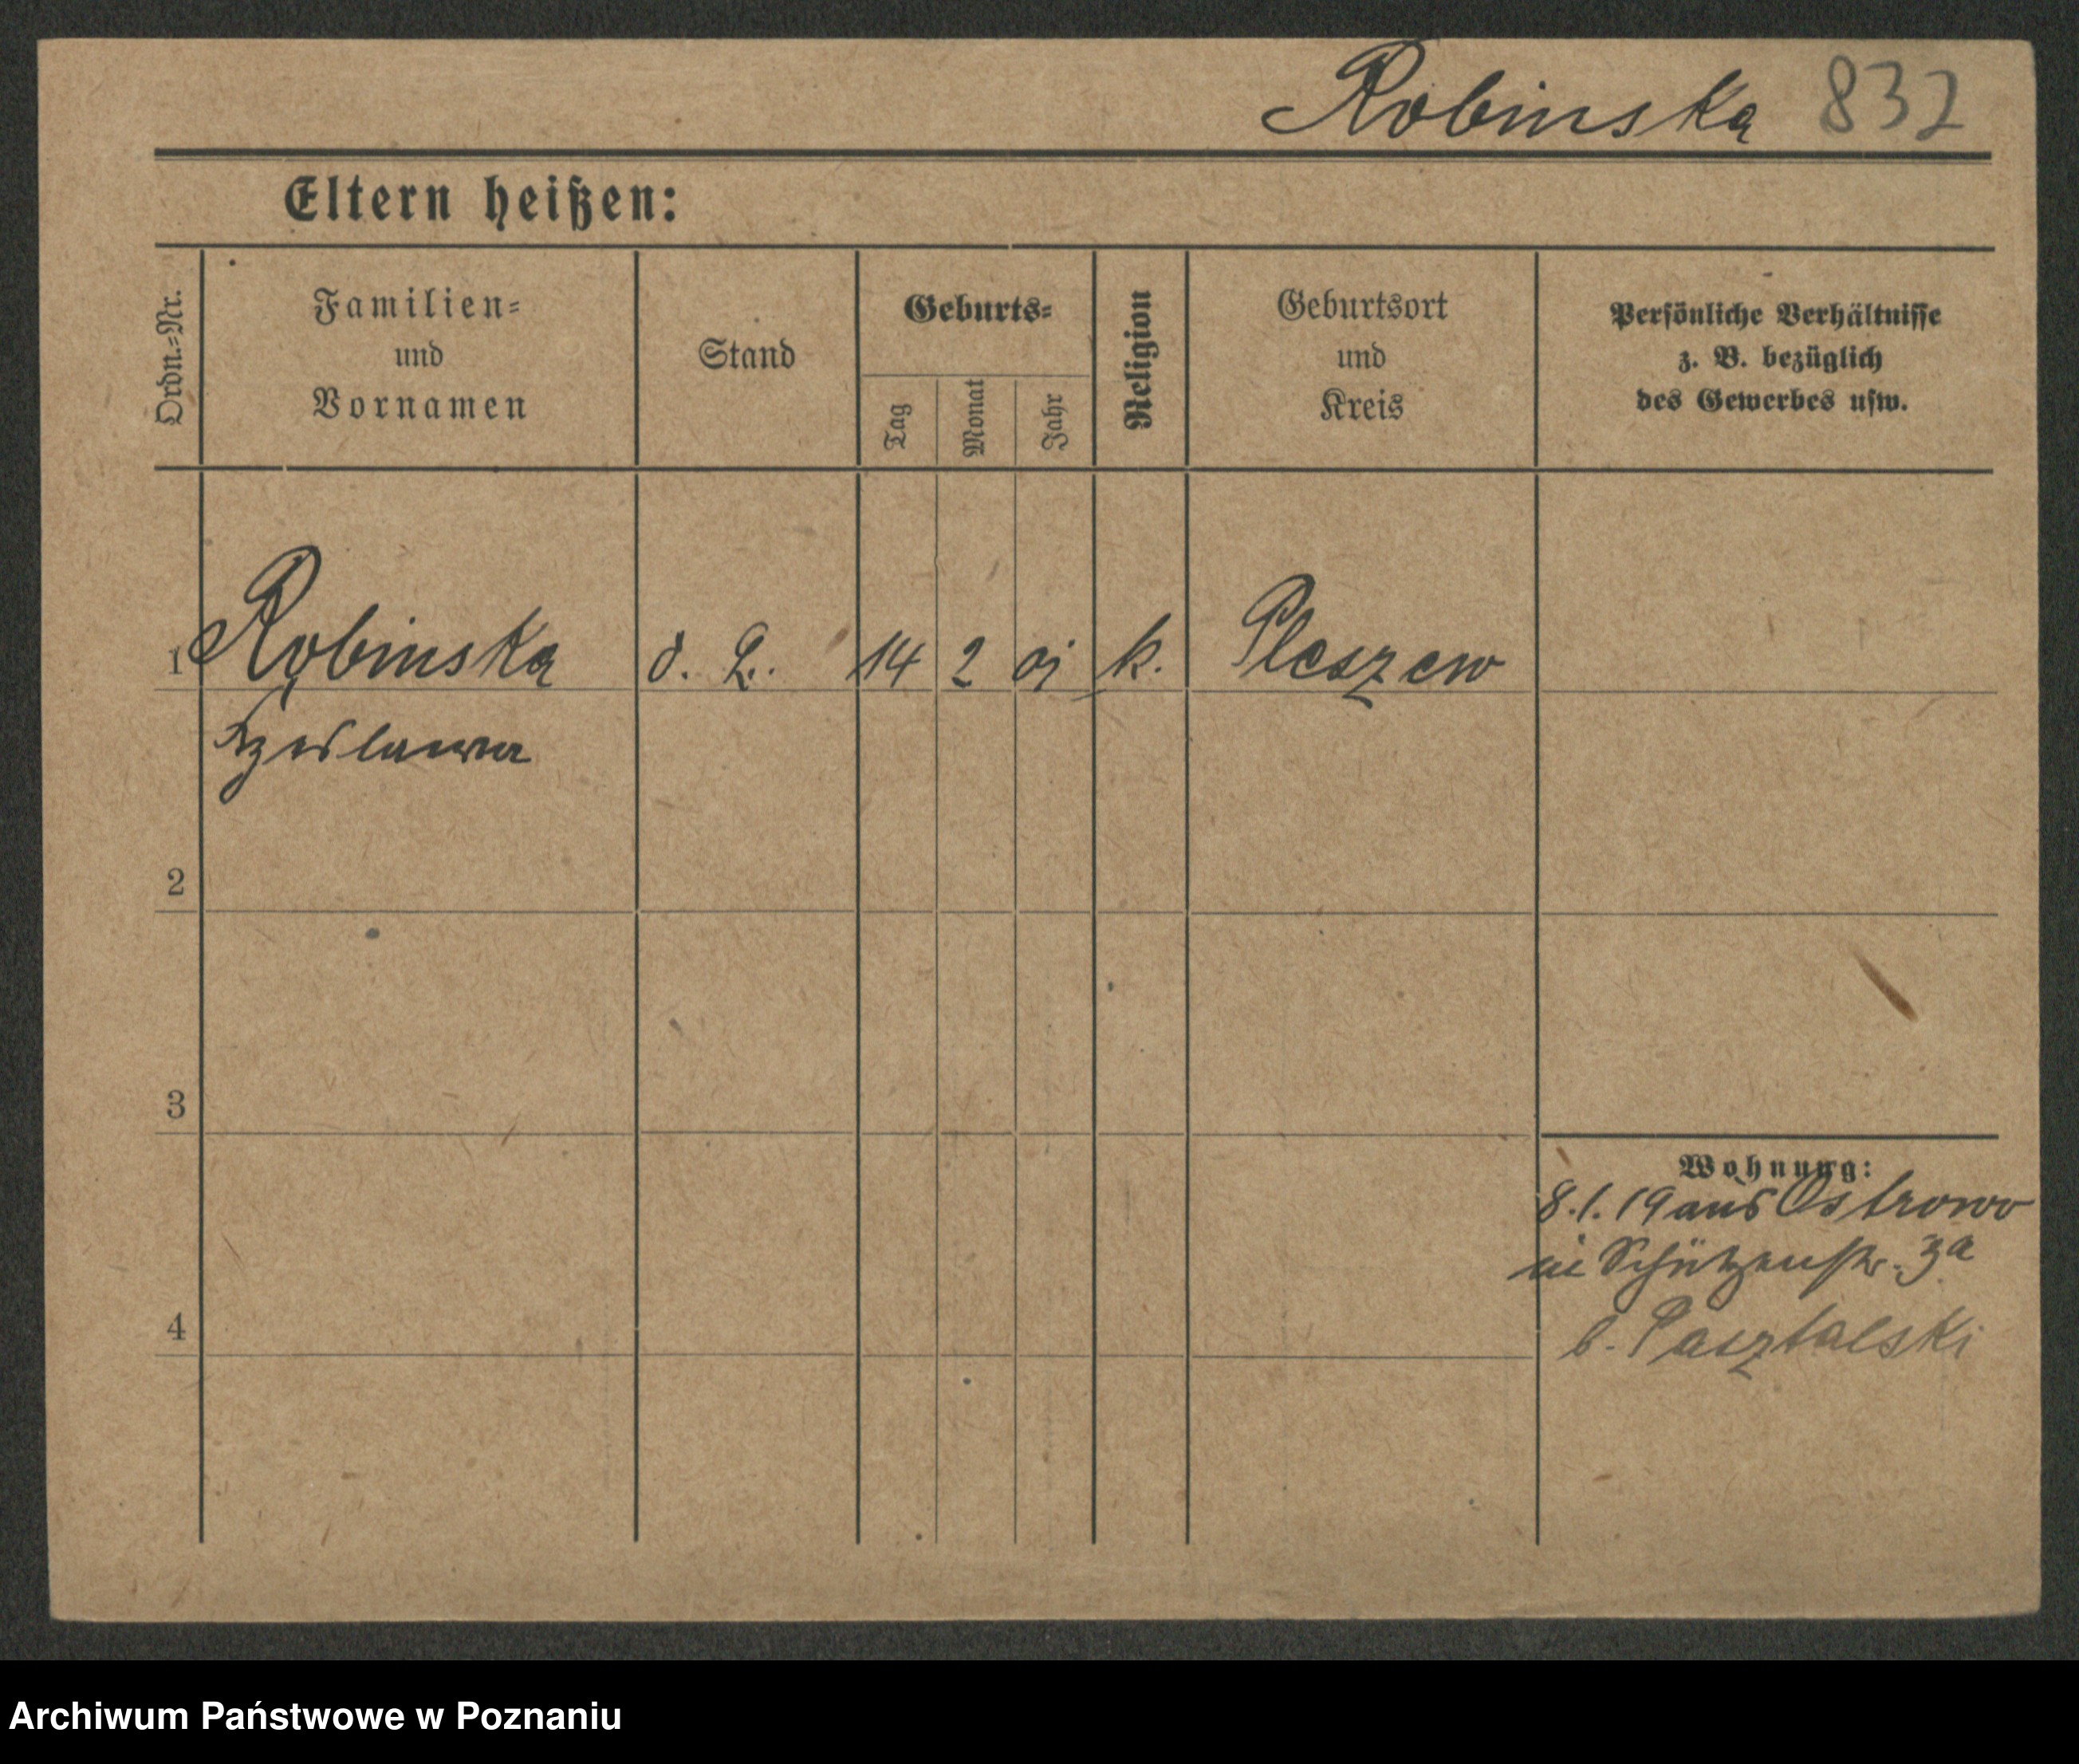 Robinska 832
Eltern heißen:
Ordn.-Nr.
Familien-
und
Vornamen
Stand
Geburts-
Tag
Monat
Jahr
Religion
Geburtsort
und
Kreis
Persönliche Verhältnisse
z. B. bezüglich
des Gewerbes usw.
1 Robinska 14 2 k. Pleszew
Czeslawa
2
3
Wohnung:
8.1.19 aus Ostrowo
in Schützenstr. 3a
b. Pasztalski
4
Archiwum Państwowe w Poznaniu